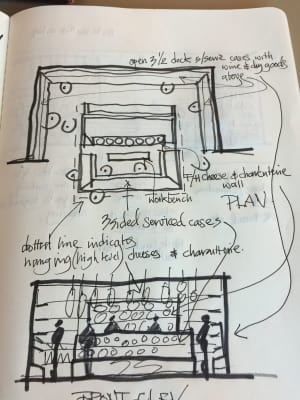 open 3 1/2 deck s/serve cases with
wine & dry goods
above
F/H cheese & charcuterie
wall
workbench
PLAN
3 sided serviced cases
dotted line indicates
hanging (high level) cheeses & charcuterie.
FRONT ELEV